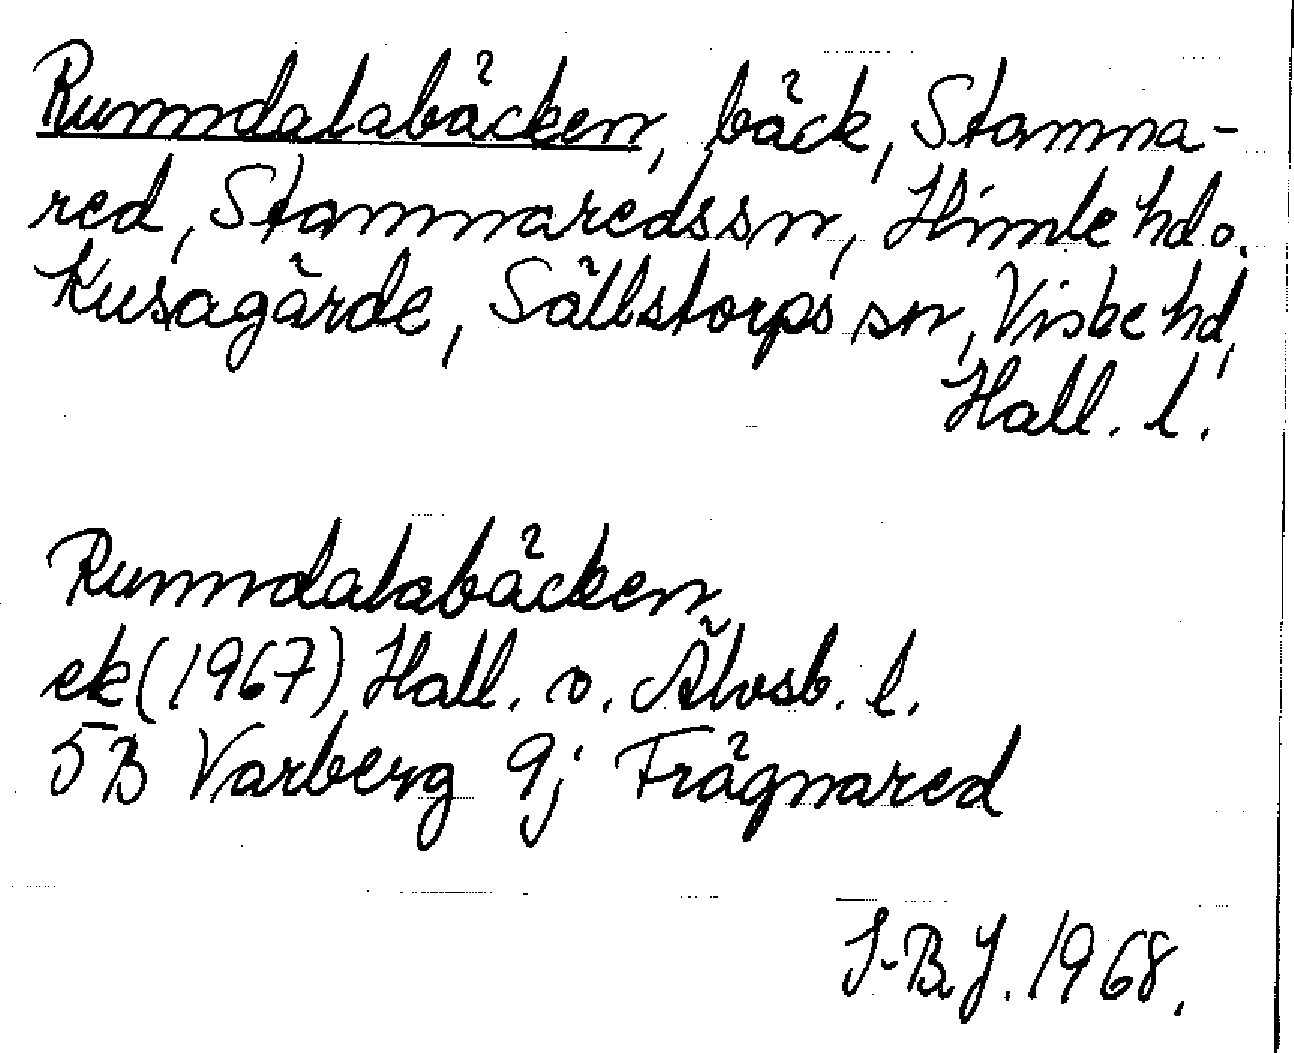 Runndalabäcken, bäck, Stamna-
red, Stamnareds sn, Himle hd o.
Kusagärde, Sällstorps sn, Viske hd,
Hall. l.
Runndalabäcken
ek (1967) Hall. o. Älvsb. l.
5B Varberg 9j Frägnared
I-B.J. 1968.